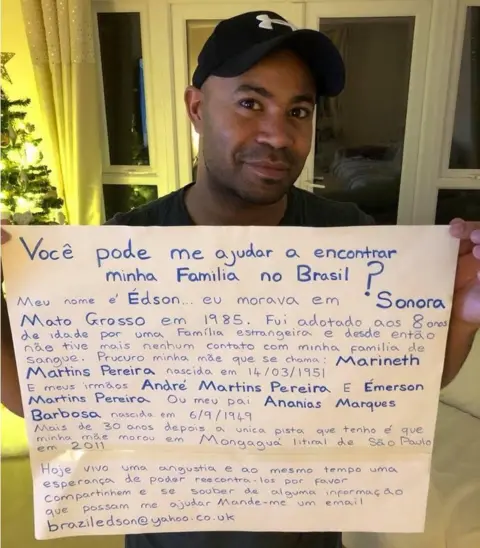 Você pode me ajudar a encontrar
minha Familia no Brasil ?
Meu nome é Édson... eu morava em Sonora
Mato Grosso em 1985. Fui adotado aos 8 anos
de idade por uma Família estrangeira e desde então
não tive mais nenhum contato com minha família de
sangue. Prucuro minha mãe que se chama: Marineth
Martins Pereira nascida em 14/03/1951
E meus irmãos André Martins Pereira E Émerson
Martins Pereira Ou meu pai Ananias Marques
Barbosa nascida em 6/9/1949
Mais de 30 anos depois a unica pista que tenho é que
minha mãe morou em Mongaguá litiral de São Paulo
em 2011
Hoje vivo uma angustia e ao mesmo tempo uma
esperança de poder reecontra-los por favor
compartinhem e se souber de alguma informação
que possam me ajudar Mande-me um email
braziledson@yahoo.co.uk